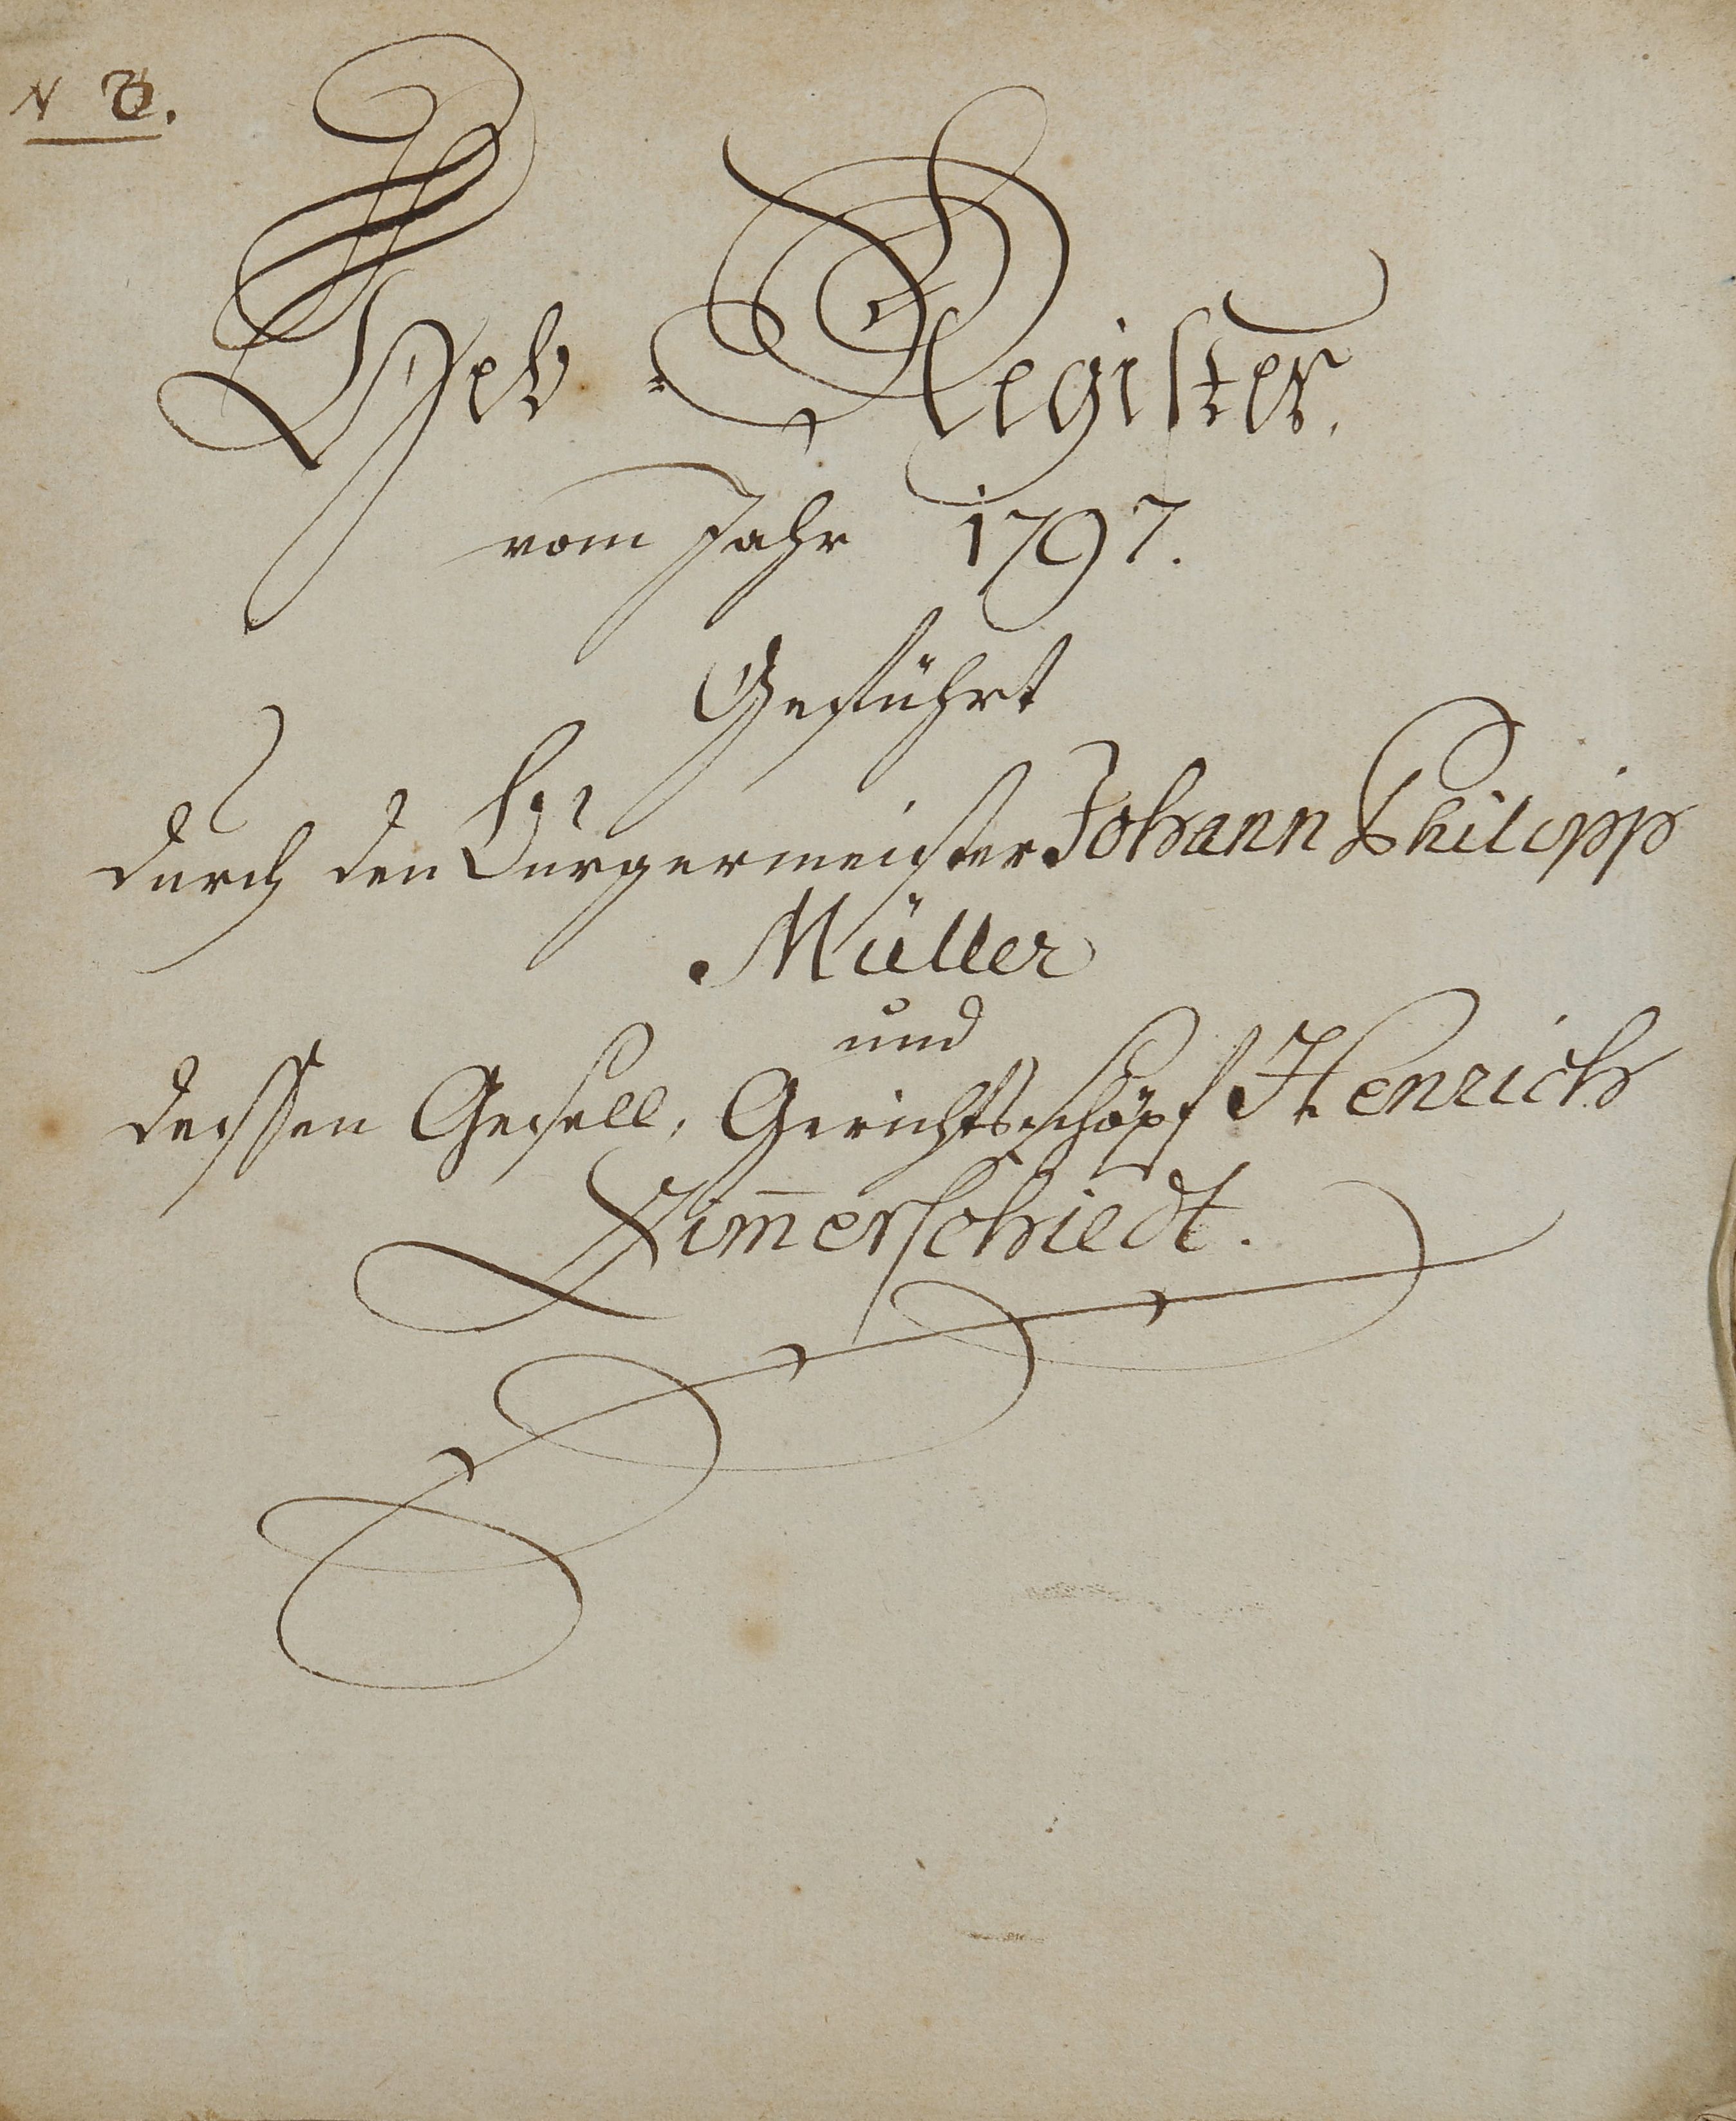 N
Heb-Register.
vom Jahr 1797.
Geführt
durch den Burgermeister Johann Philipp
Müller
und
dessen Gesell, Gerichtsschöpf Henrich
Zim̄erschiedt.